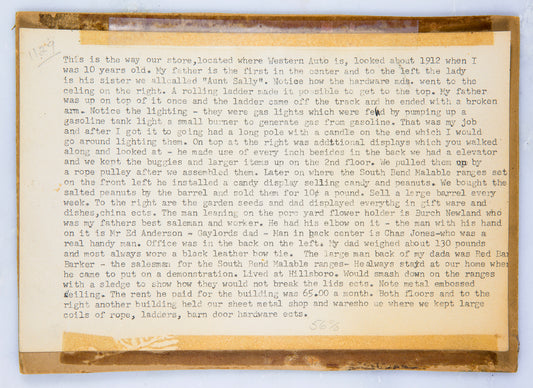 1129
This is the way our store,located where Western Auto is, looked about 1912 when I
was 10 years old. My father is the first in the center and to the left the lady
is his sister we allcalled "Aunt Sally". Notice how the hardware ads. went to the
celing on the right. A rolling ladder made it possible to get to the top. My father
was up on top of it once and the ladder came off the track and he ended with a broken
arm. Notice the lighting - they were gas lights which were fed by pumping up a
gasoline tank light a small burner to generate gas from gasoline. That was my job
and after I got it to going had a long pole with a candle on the end which I would
go around lighting them. On top at the right was additional displays which you walked
along and looked at - he made use of every inch besides in the back we had a elevator
and we kept the buggies and larger items up on the 2nd floor. We pulled them up by
a rope pulley after we assembled them. Later on where the South Bend Malable ranges set
on the front left he installed a candy display selling candy and peanuts. We bought the
salted peanuts by the barrel and sold them for 10¢ a pound. Sell a large barrel every
week. To the right are the garden seeds and dad displayed everythg in gift ware and
dishes,china ects. The man leaning on the porc yard flower holder is Burch Newland who
was my fathers best saleman and worker. He had his elbow on it - the man with his hand
on it is Mr Ed Anderson - Gaylords dad - Man in back center is Chas Jones-who was a
real handy man. Office was in the back on the left. My dad weighed about 130 pounds
and most always wore a black leather bow tie. The large man back of my dada was Red Bar
Barker - the salesman for the South Bend Malable ranges- Healways stayd at our home when
he came to put on a demonstration. Lived at Hillsboro. Would smash down on the ranges
with a sledge to show how they would not break the lids ects. Note metal embossed
ceiling. The rent he paid for the building was 65.00 a month. Both floors and to the
right another building held our sheet metal shop and waresho us where we kept large
coils of rope, ladders, barn door hardware ects.